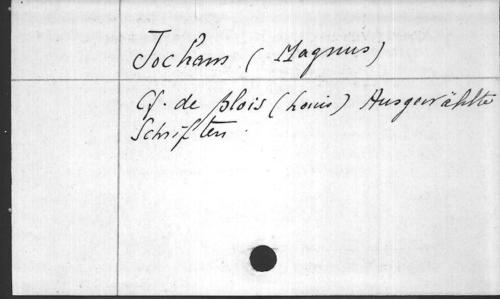 Jocham (Magnus)
Cf. de Blois (Louis) Ausgewählte
Schriften.